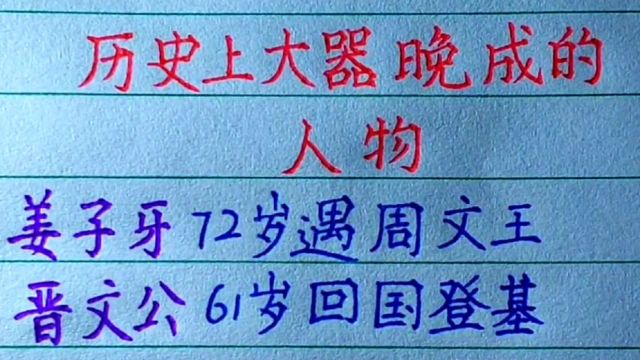 历史上大器晚成的
人物
姜子牙72岁遇周文王
晋文公61岁回国登基